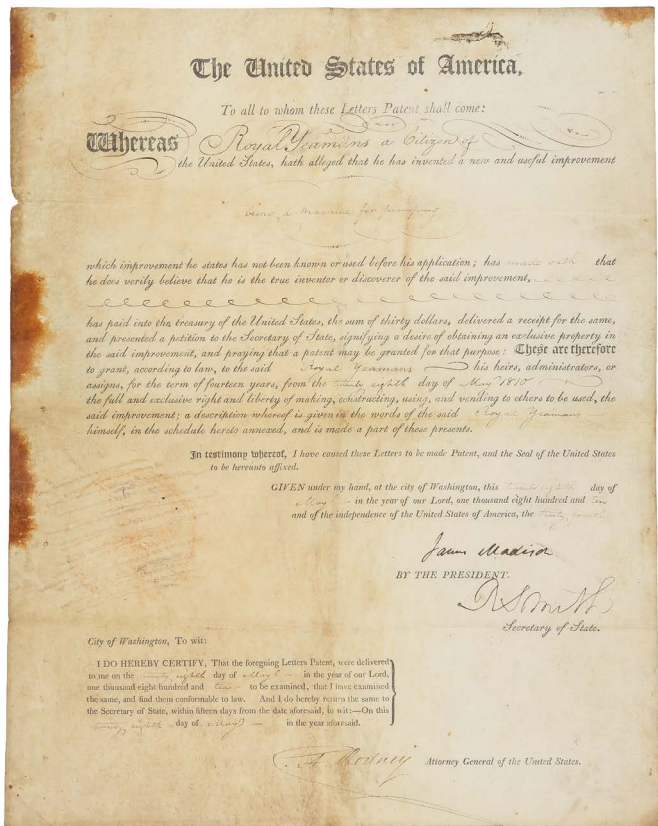 The United States of America,
To all to whom these Letters Patent shall come:
Whereas Royal Yeamans a Citizen of
the United States, hath alleged that he has invented a new and useful improvement
being a Machine for
which improvement he states has not been known or used before his application; has made oath that
he does verily believe that he is the true inventor or discoverer of the said improvement,
has paid into the treasury of the United States, the sum of thirty dollars, delivered a receipt for the same,
and presented a petition to the Secretary of State, signifying a desire of obtaining an exclusive property in
the said improvement, and praying that a patent may be granted for that purpose: These are therefore
to grant, according to law, to the said Royal Yeamans his heirs, administrators, or
assigns, for the term of fourteen years, from the twenty eighth day of May 1810
the full and exclusive right and liberty of making, constructing, using, and vending to others to be used, the
said improvement; a description whereof is given in the words of the said Royal Yeamans
himself, in the schedule hereto annexed, and is made a part of these presents.
In testimony whereof, I have caused these Letters to be made Patent, and the Seal of the United States
to be hereunto affixed.
GIVEN under my hand, at the city of Washington, this twenty eighth day of
May in the year of our Lord, one thousand eight hundred and ten
and of the independence of the United States of America, the thirty fourth
James Madison
BY THE PRESIDENT.
R Smith
Secretary of State.
City of Washington, To wit:
I DO HEREBY CERTIFY, That the foregoing Letters Patent, were delivered
to me on the twenty eighth day of May in the year of our Lord,
one thousand eight hundred and ten to be examined, that I have examined
the same, and find them conformable to law. And I do hereby return the same to
the Secretary of State, within fifteen days from the date aforesaid, to wit:—On this
twenty eighth day of May in the year aforesaid.
C. A. Rodney Attorney General of the United States.